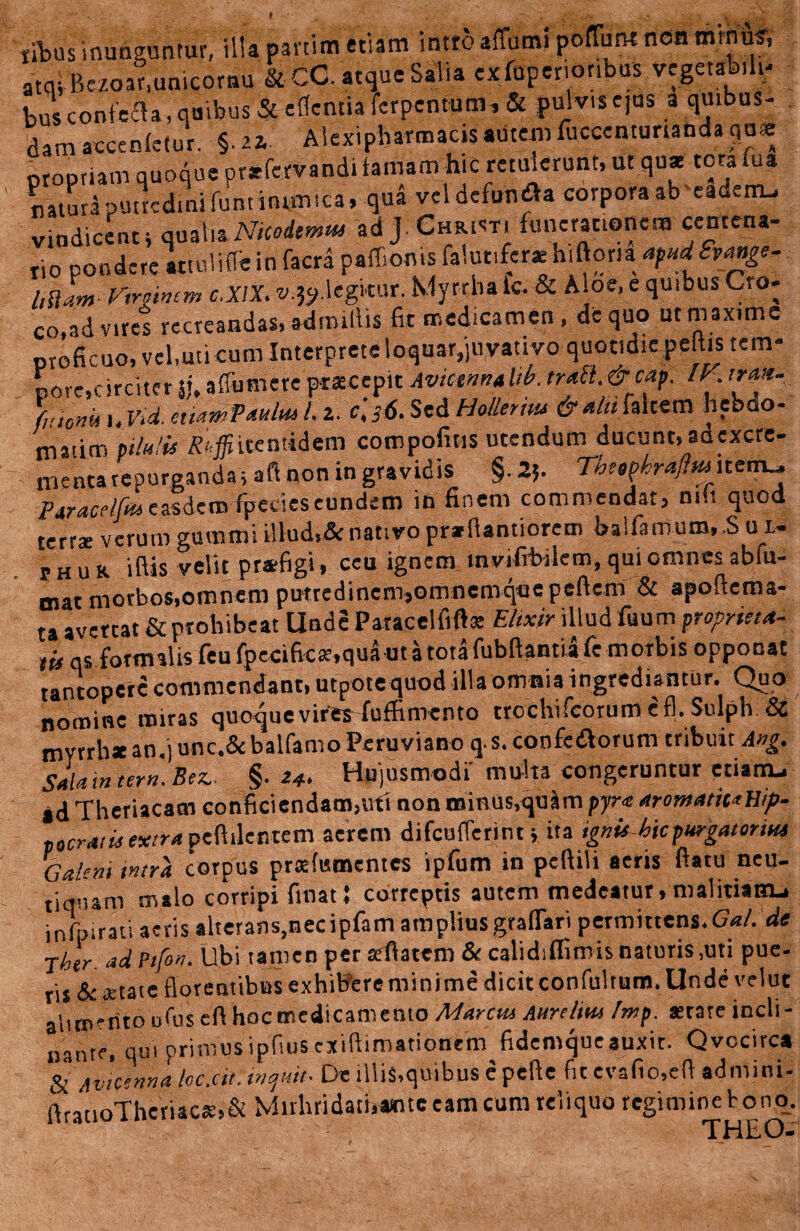 ribus inunguntur, illa partim etiam intrò assumi possunt non minus,
atq; Bezoar, unicornu & CC. atque Salia ex superioribus vegetabili-
bus confecta, quibus & essentia serpentum, & pulvis ejus à quibus-
dam accensetur. §. 22. Alexipharmacis autem succenturianda quæ
propriam quoque præservandi famam hic retulerunt, ut quæ tota sua
natura putredini sunt inimica, quâ vel defuncta corpora ab eadem
vindicent; qualia Nicodemus ad J. Christi funerationem centena-
rio pondere attulisse in sacrâ passionis salutiferæ historiâ apud Evange-
listam Virginem c. XIX. v. 39. legitur. Myrrha sc. & Aloe, è quibus Cro-
co, ad vires recreandas, admistis fit medicamen, de quo ut maximè
proficuo, vel, uti cum Interprete loquar, juvativo quotidie pestis tem-
pore, circiter ʒj. assumere præcepit Avicenna lib. tract. & cap. IV. tran-
sitionis 1. Vid. etiam Paulus l. 2. c. 36. Sed Hollerius & alii saltem hebdo-
matim pilulis Ruffi itentidem compositis utendum ducunt, ad excre-
menta repurganda; ast non in gravidis §. 23. Theophrastus item
Paracelsus easdem species eundem in finem commendat, nisi quod
terræ verum gummi illud, & nativo præstantiorem balsamum, Sul-
phur istis velit præfigi, ceu ignem invisibilem, qui omnes absu-
mat morbos, omnem putredinem, omnemque pestem & apostema-
ta avertat & prohibeat Unde Paracelsistæ Elixir illud suum proprieta-
tis qs formalis seu specificæ, quâ ut à totâ substantiâ se morbis opponat
tantoperè commendant, utpote quod illa omnia ingrediantur. Quo
nomine miras quoque vires suffimento trochiscorum è fl. Sulph. &
myrrhæ an. j unc. & balsamo Peruviano q. s. confectorum tribuit Ang.
Sala in tern. Bez. §. 24. Hujusmodi multa congeruntur etiam
ad Theriacam conficiendam, uti non minus, quàm pyræ aromaticæ Hip-
pocratis extra pestilentem aerem discusserint; ita ignis hic purgatorius
Galeni intrà corpus præsumentes ipsum in pestili aeris statu neu-
tiquam malo corripi sinat: correptis autem medeatur, malitiam
inspirati aeris alterans, nec ipsam amplius grassari permittens. Gal. de
Ther. ad Pison. Ubi tamen per æstatem & calidissimis naturis, uti pue-
ris & ætate florentibus exhibere minimè dicit consultum. Unde velut
alimento usus est hoc medicamento Marcus Aurelius Imp. ætate incli-
nante, qui primus ipsius existimationem fidemque auxit. Qvocirca
& Avicenna loc. cit. inquit. De illis, quibus è peste fit evasio, est admini-
stratio Theriacæ, & Mithridati, ante eam cum reliquo regimine bono.
THEO-